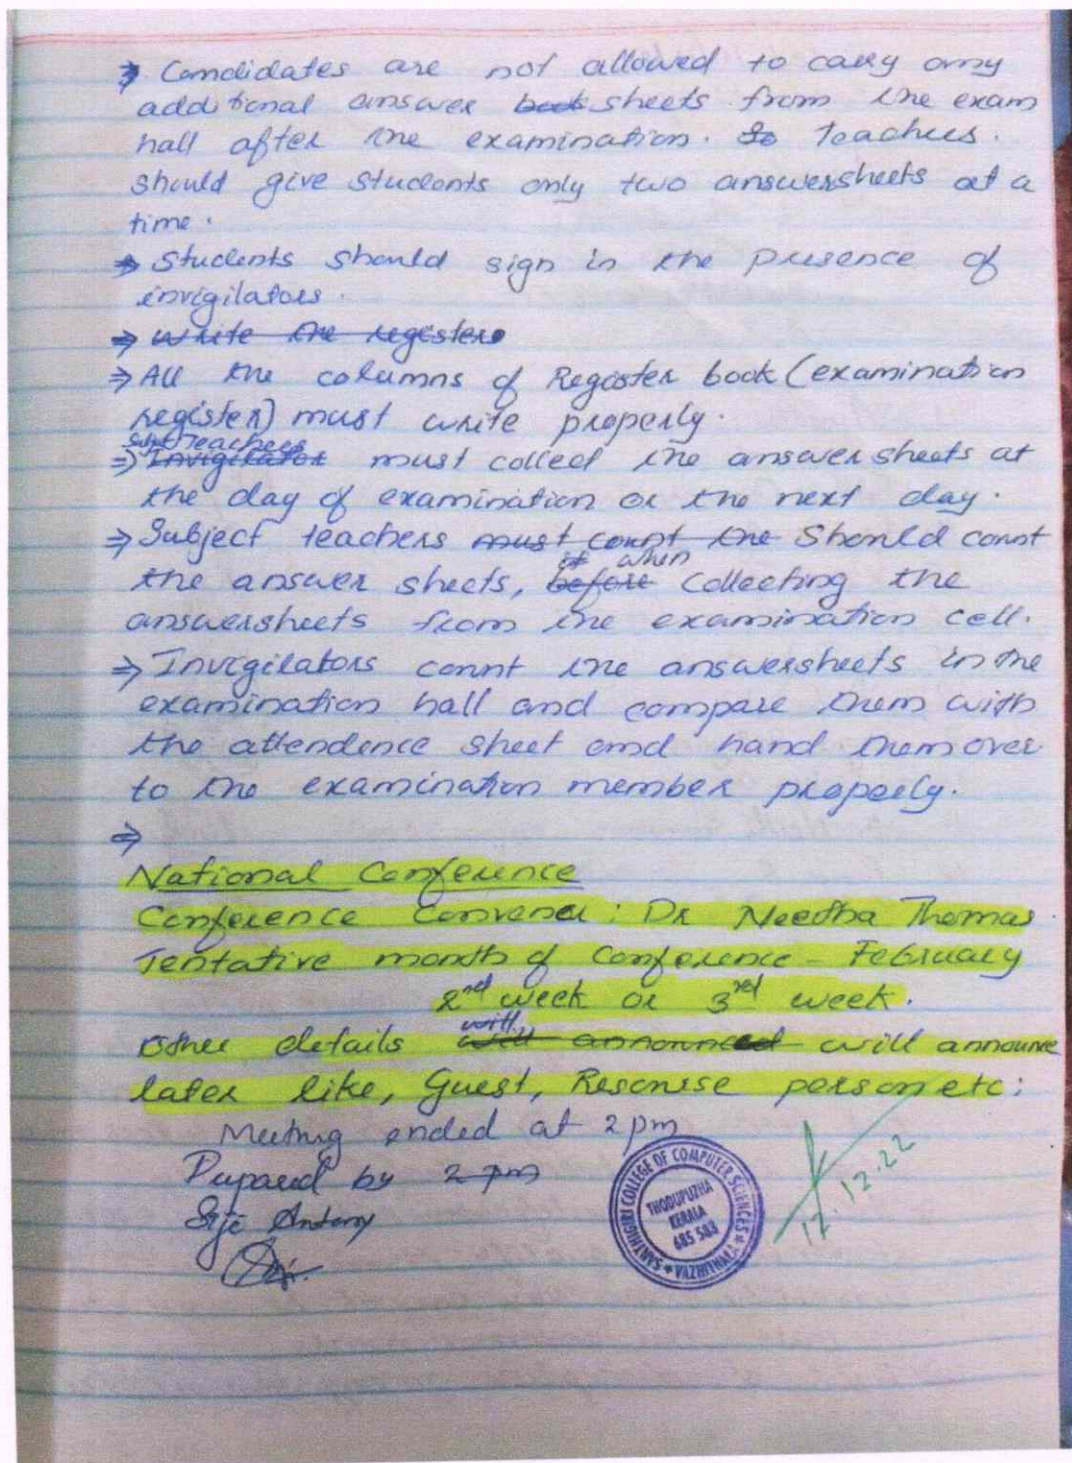 ⇒ Candidates are not allowed to carry any
additional answer sheets from the exam
hall after the examination. Teachers.
should give students only two answersheets at a
time.
⇒ Students should sign in the presence of
invigilators.
⇒ Write the registers
⇒ All the columns of Register book (examination
register) must write properly.
Subject Teachers
⇒ Invigilator must collect the answer sheets at
the day of examination or the next day.
⇒ Subject teachers must count the Should count
when
the answer sheets, before collecting the
answersheets from the examination cell.
⇒ Invigilators count the answersheets in the
examination hall and compare them with
the attendence sheet and hand them over
to the examination member properly.
⇒
National Conference
Conference Convener: Dr Needha Thomas
Tentative month of Conference - February
2nd week or 3rd week.
will
Other details will announced will announce
later like, Guest, Resourse person etc:
Meeting ended at 2 pm
Prepared by 2 pm
Antony
SANTHIGIRI COLLEGE OF COMPUTER SCIENCES * VAZHITHALA *
THODUPUZHA
KERALA
685 583
17.12.22